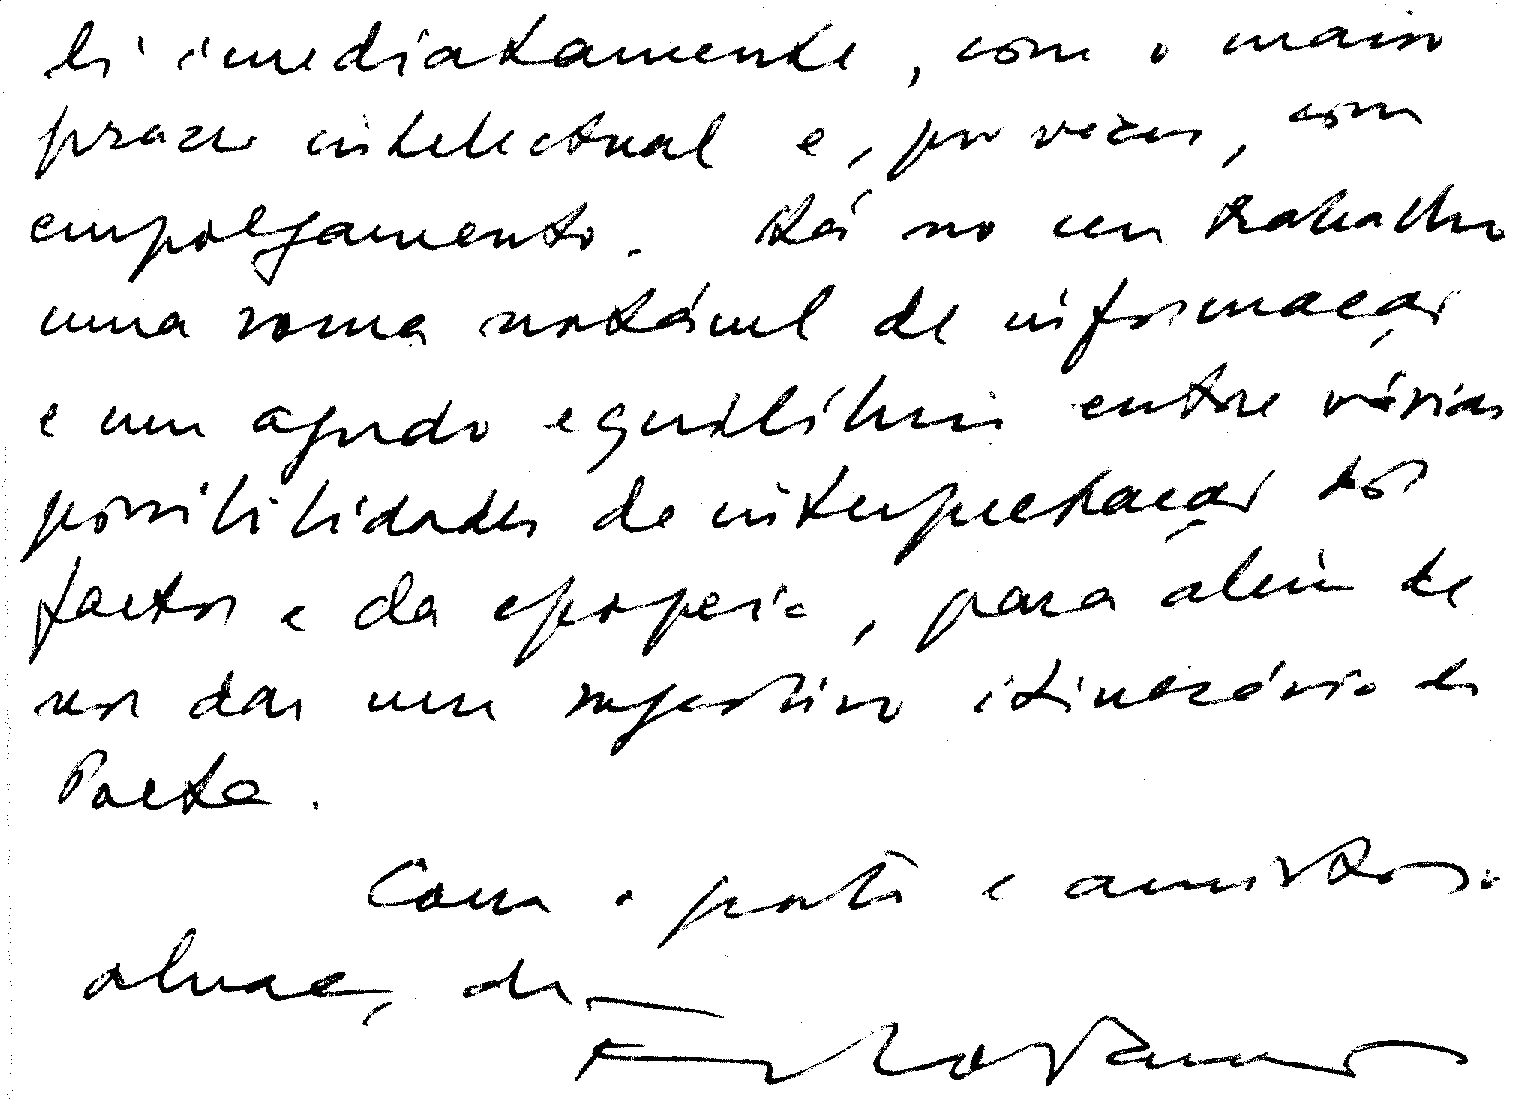 li imediatamente, com o maior
prazer intelectual e, por vezes, com
empolgamento. Há no seu trabalho
uma soma notável de informação
e um agudo equilíbrio entre várias
possibilidades de interpretação dos
factos e da epopeia, para além de
nos dar um sugestivo itinerário do
Poeta.
Com o grato e amistoso
abraço, do